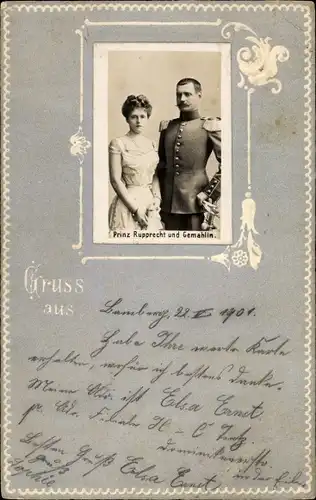 Prinz Rupprecht und Gemahlin.
Gruss
aus
Bamberg, 22. V 1901.
Habe Ihre werte Karte
erhalten, wofür ich bestens danke.
Meine Adr. ist Elsa Ernst
p. Adr. Filiale H. C
Besten Gruß
Elsa Ernst